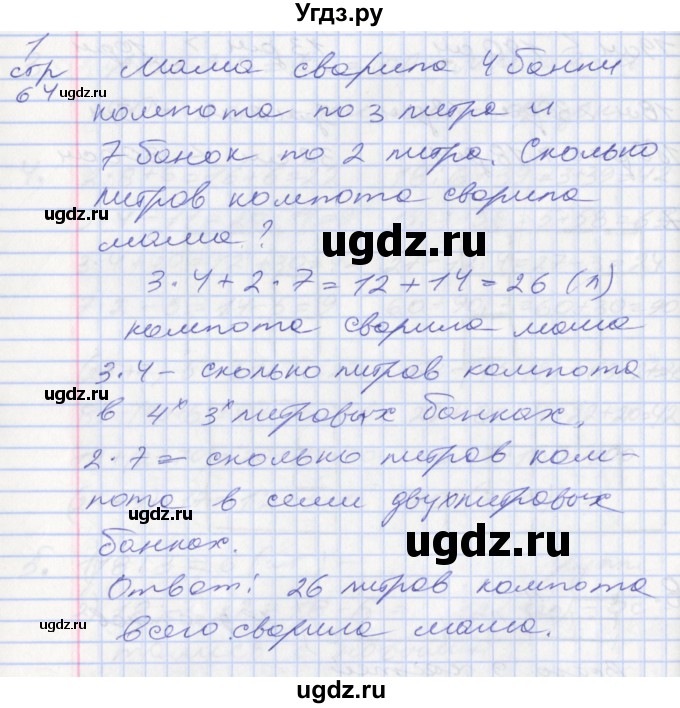 Угдз.ру
1
стр
64
Мама сварила 4 банки
компота по 3 литра и
7 банок по 2 литра. Сколько
литров компота сварила
мама?
3·4+2·7=12+14=26 (л)
компота сварила мама
3·4 – сколько литров компота
в 4х 3х литровых банках,
2·7 – сколько литров ком-
пота в семи двухлитровых
банках.
Ответ: 26 литров компота
всего сварила мама.
ugdz.ru
ugdz.ru
ugdz.ru
ugdz.ru
ugdz.ru
ugdz.ru
ugdz.ru
ugdz.ru